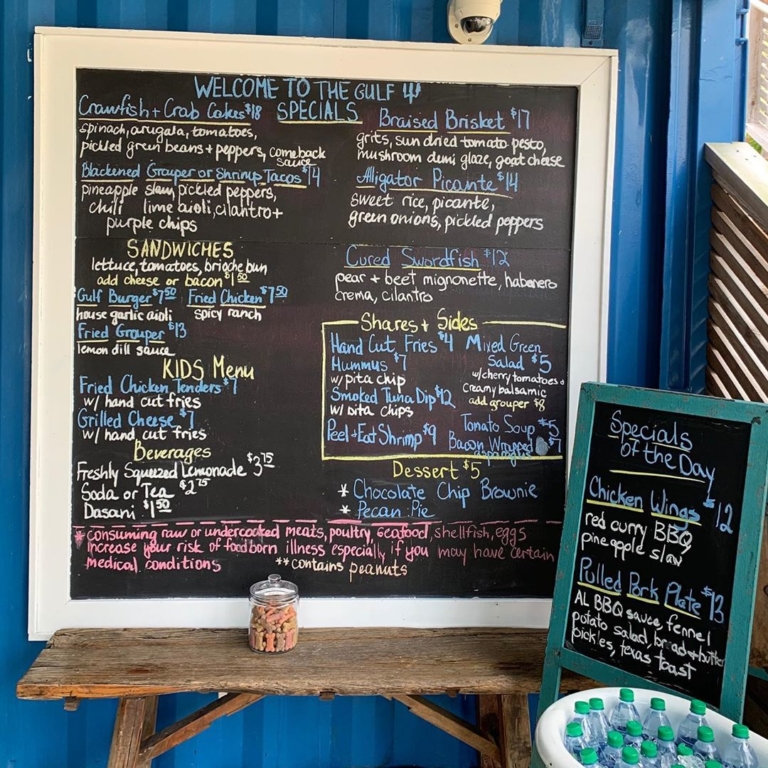 WELCOME TO THE GULF
SPECIALS
Crawfish + Crab Cakes $18
spinach, arugala, tomatoes,
pickled green beans + peppers, comeback
sauce
Blackened Grouper or Shrimp Tacos $14
pineapple slaw, pickled peppers,
chili lime aioli, cilantro +
purple chips
Braised Brisket $17
grits, sun dried tomato pesto,
mushroom demi glaze, goat cheese
Alligator Picante $14
sweet rice, picante,
green onions, pickled peppers
SANDWICHES
lettuce, tomatoes, brioche bun
add cheese or bacon $1.50
Gulf Burger $7.50 Fried Chicken $7.50
house garlic aioli spicy ranch
Fried Grouper $13
lemon dill sauce
Cured Swordfish $12
pear + beet mignonette, habanero
crema, cilantro
KIDS Menu
Fried Chicken Tenders $7
w/ hand cut fries
Grilled Cheese $7
w/ hand cut fries
Beverages
Freshly Squeezed Lemonade $3.75
Soda or Tea $2.75
Dasani $1.50
Shares + Sides
Hand Cut Fries $4
Hummus $7
w/ pita chip
Smoked Tuna Dip $12
w/ pita chips
Peel + Eat Shrimp $9
Mixed Green
Salad $5
w/ cherry tomatoes +
creamy balsamic
add grouper $8
Tomato Soup $5
Bacon Wrapped $7
asparagus
Dessert $5
* Chocolate Chip Brownie
* Pecan Pie
* consuming raw or undercooked meats, poultry, seafood, shellfish, eggs
increase your risk of foodborn illness especially if you may have certain
medical conditions
** contains peanuts
Specials
of the Day
Chicken Wings $12
red curry BBQ
pineapple slaw
Pulled Pork Plate $13
AL BBQ sauce, fennel
potato salad, bread + butter
pickles, texas toast